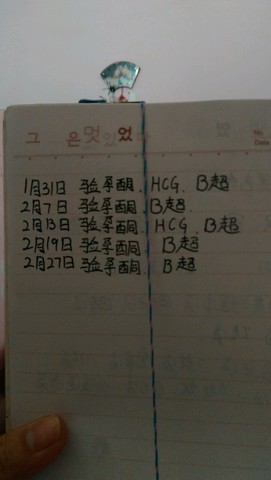 그 은멋있었다
No
Date
1月31日 验孕酮、HCG、B超
2月7日 验孕酮、B超.
2月13日 验孕酮、HCG、B超
2月19日 验孕酮 B超
2月27日 验孕酮、B超